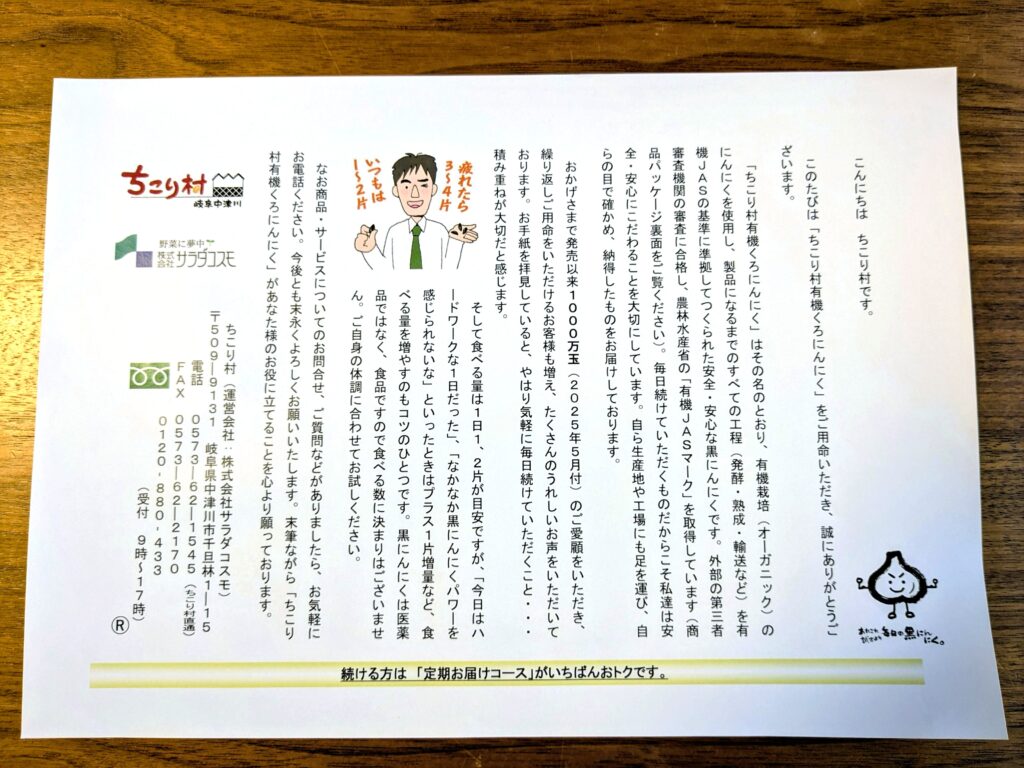 こんにちは ちこり村です。
このたびは「ちこり村有機くろにんにく」をご用命いただき、誠にありがとうご
ざいます。
「ちこり村有機くろにんにく」はその名のとおり、有機栽培（オーガニック）の
にんにくを使用し、製品になるまでのすべての工程（発酵・熟成・輸送など）を有
機JASの基準に準拠してつくられた安全・安心な黒にんにくです。外部の第三者
審査機関の審査に合格し、農林水産省の「有機JASマーク」を取得しています（商
品パッケージ裏面をご覧ください）。毎日続けていただくものだからこそ私達は安
全・安心にこだわることを大切にしています。自ら生産地や工場にも足を運び、自
らの目で確かめ、納得したものをお届けしております。
おかげさまで発売以来1000万玉（2025年5月付）のご愛顧をいただき、
繰り返しご用命をいただけるお客様も増え、たくさんのうれしいお声をいただいて
おります。お手紙を拝見していると、やはり気軽に毎日続けていただくこと・・・
積み重ねが大切だと感じます。
疲れたら
3〜4片
いつもは
1〜2片
そして食べる量は1日1、2片が目安ですが、「今日はハ
ードワークな1日だった」、「なかなか黒にんにくパワーを
感じられないな」といったときはプラス1片増量など、食
べる量を増やすのもコツのひとつです。黒にんにくは医薬
品ではなく、食品ですので食べる数に決まりはございませ
ん。ご自身の体調に合わせてお試しください。
なお商品・サービスについてのお問合せ、ご質問などがありましたら、お気軽に
お電話ください。今後とも末永くよろしくお願いいたします。末筆ながら「ちこり
村有機くろにんにく」があなた様のお役に立てることを心より願っております。
ちこり村
岐阜中津川
野菜に夢中
株式会社サラダコスモ
ちこり村（運営会社：株式会社サラダコスモ）
〒509―9131 岐阜県中津川市千旦林1―15
電話 0573―62―1545（ちこり村直通）
FAX 0573―62―2170
0120-880-433
（受付 9時〜17時）
®
毎日の黒にんにく。
続ける方は「定期お届けコース」がいちばんおトクです。